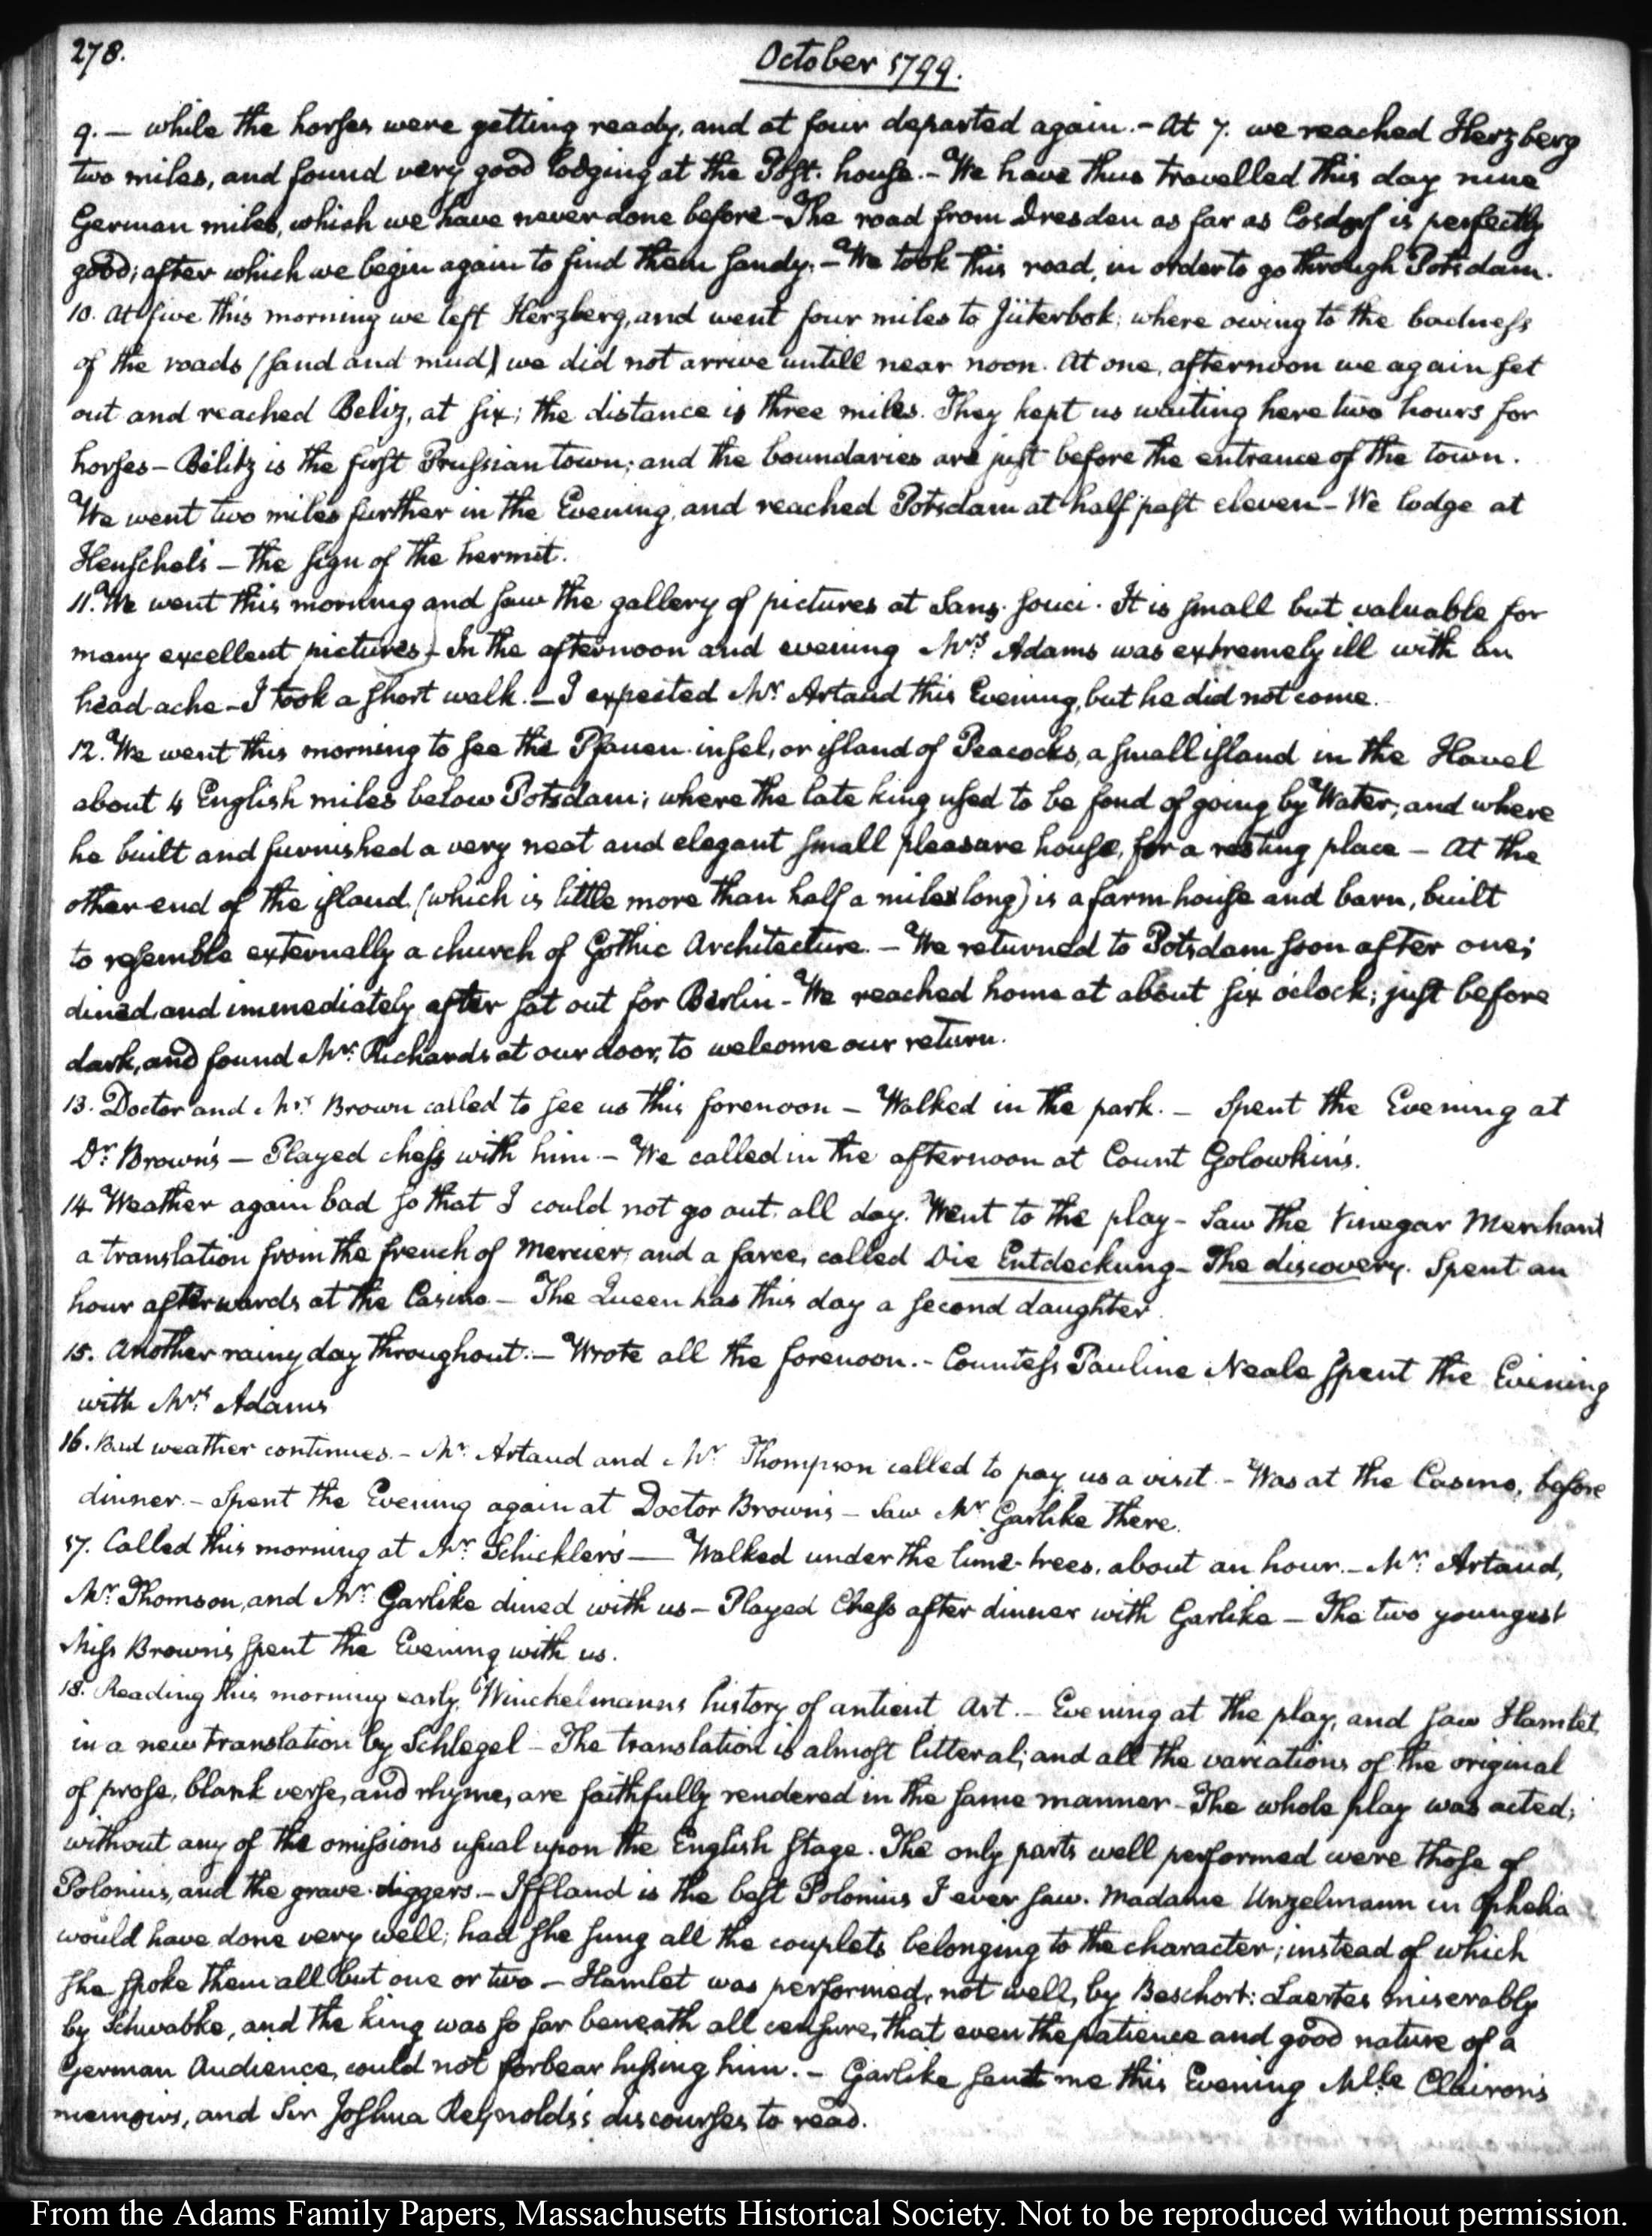 278.
October 1799.
9. — while the horses were getting ready, and at four departed again. — At 7. we reached Herzberg
two miles, and found very good lodging at the Post-house. — We have thus travelled this day nine
German miles, which we have never done before — The road from Dresden as far as Cosdorf is perfectly
good; after which we begin again to find them sandy. — We took this road, in order to go through Potsdam.
10. At five this morning we left Herzberg, and went four miles to Jüterbok; where owing to the badness
of the roads (sand and mud) we did not arrive untill near noon. At one, afternoon we again set
out and reached Beliz, at six; the distance is three miles. They kept us waiting here two hours for
horses — Bëlitz is the first Prussian town; and the boundaries are just before the entrance of the town.
We went two miles further in the Evening, and reached Potsdam at half past eleven — We lodge at
Henschel's — the sign of the hermit.
11. We went this morning and saw the gallery of pictures at Sans-souci. It is small but valuable for
many excellent pictures. In the afternoon and evening Mrs. Adams was extremely ill with an
head-ache — I took a short walk. — I expected Mr. Artaud this Evening, but he did not come.
12. We went this morning to see the Pfauen-insel, or island of Peacocks, a small island in the Havel
about 4 English miles below Potsdam; where the late king used to be fond of going by Water; and where
he built and furnished a very neat and elegant small pleasure house, for a resting place — At the
other end of the island (which is little more than half a mile long) is a farm house and barn, built
to resemble externally a church of Gothic Architecture. — We returned to Potsdam soon after one;
dined, and immediately after sat out for Berlin — We reached home at about six o'clock; just before
dark, and found Mr. Richards at our door, to welcome our return.
13. Doctor and Mrs. Brown called to see us this forenoon — Walked in the park. — Spent the Evening at
Dr. Brown's — Played chess with him — We called in the afternoon at Count Golowkin's.
14. Weather again bad so that I could not go out all day. Went to the play — Saw the Vinegar Merchant
a translation from the french of Mercier, and a farce, called Die Entdeckung — The discovery. Spent an
hour afterwards at the Casino — The Queen has this day a second daughter.
15. Another rainy day throughout. — Wrote all the forenoon. — Countess Pauline Neale spent the Evening
with Mrs. Adams
16. Bad weather continues. — Mr. Artaud and Mr. Thompson called to pay us a visit. — Was at the Casino, before
dinner. — Spent the Evening again at Doctor Brown's — Saw Mr. Garlike there.
17. Called this morning at Mr. Schickler's — Walked under the lime-trees, about an hour. — Mr. Artaud,
Mr. Thomson, and Mr. Garlike dined with us — Played Chess after dinner with Garlike — The two youngest
Miss Brown's spent the Evening with us.
18. Reading this morning early, Winckelmanns history of antient Art. — Evening at the play, and saw Hamlet,
in a new translation by Schlegel — The translation is almost litteral; and all the variations of the original
of prose, blank verse, and rhyme, are faithfully rendered in the same manner — The whole play was acted;
without any of the omissions usual upon the English stage. The only parts well performed were those of
Polonius, and the grave-diggers. — Iffland is the best Polonius I ever saw. Madame Unzelmann in Ophelia
would have done very well; had she sung all the couplets belonging to the character; instead of which
she spoke them all but one or two — Hamlet was performed, not well, by Beschort: Laertes miserably
by Schwabke, and the king was so far beneath all censure, that even the patience and good nature of a
German Audience, could not forbear hissing him. — Garlike sent me this Evening Mlle Clairon's
memoirs, and Sir Joshua Reynolds's discourses to read.
From the Adams Family Papers, Massachusetts Historical Society. Not to be reproduced without permission.